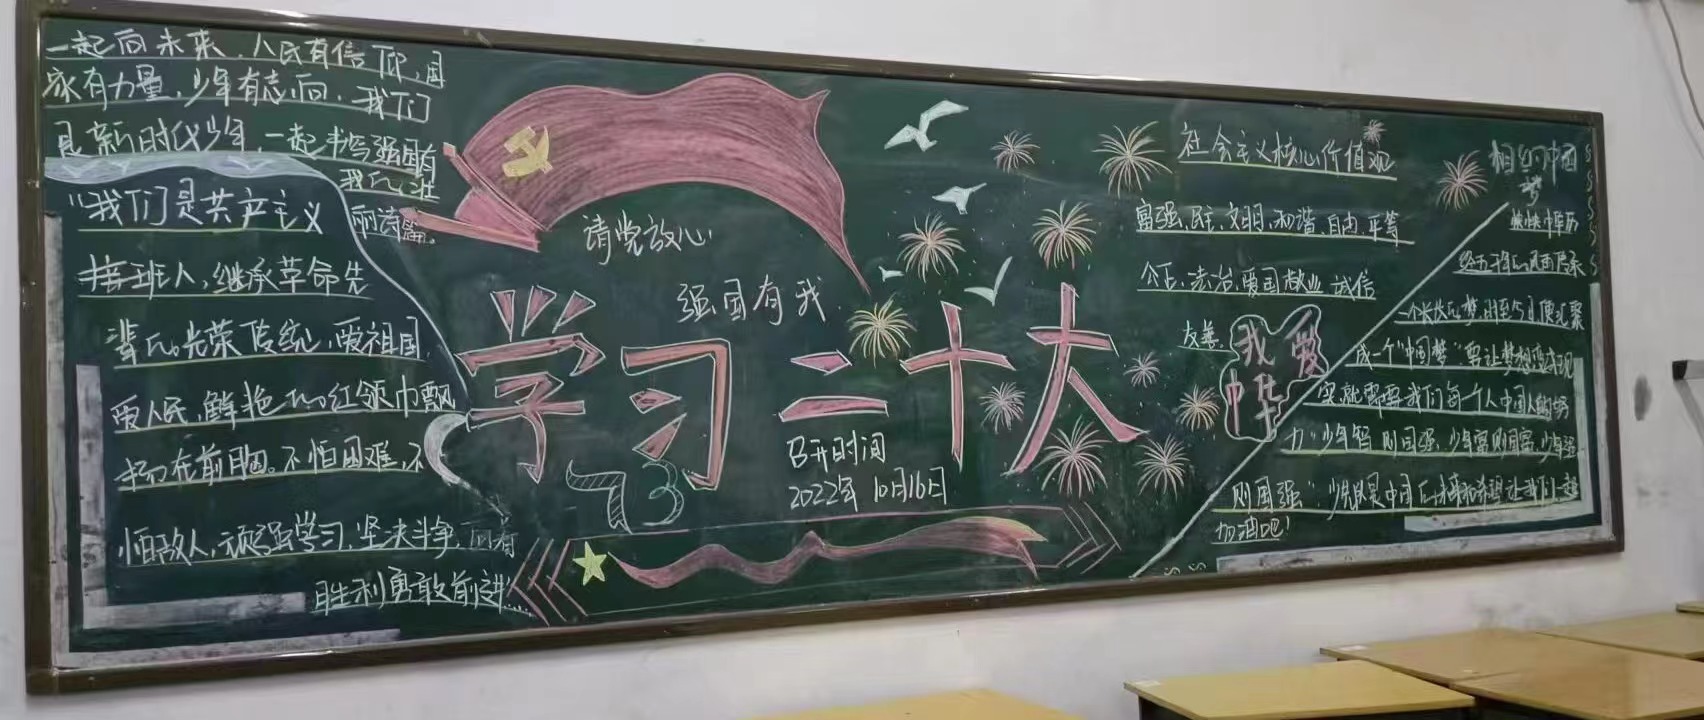 一起向未来，人民有信仰，国
家有力量，少年有志向，我们
是新时代少年，一起书写强国有
我的壮
丽诗篇。
"我们是共产主义
接班人，继承革命先
辈的光荣传统，爱祖国
爱人民，鲜艳的红领巾飘
扬在前胸。不怕困难，不
怕敌人，顽强学习，坚决斗争，向着
胜利勇敢前进……
请党放心
强国有我
学习二十大
73
召开时间
2022年 10月16日
社会主义核心价值观
富强、民主、文明、和谐、自由、平等
公正、法治、爱国 敬业 诚信
友善。
我爱
中华
相约中国
梦
泱泱中华历
经五千年的风雨传承
一个长久的梦，时至今日便汇聚
成一个"中国梦"要让梦想变成现
实就需要我们每一个人中国人的努
力"少年智 则国强，少年富则国富，少年强
则国强"，少年是中国的未来和希望让我们一起
加油吧！